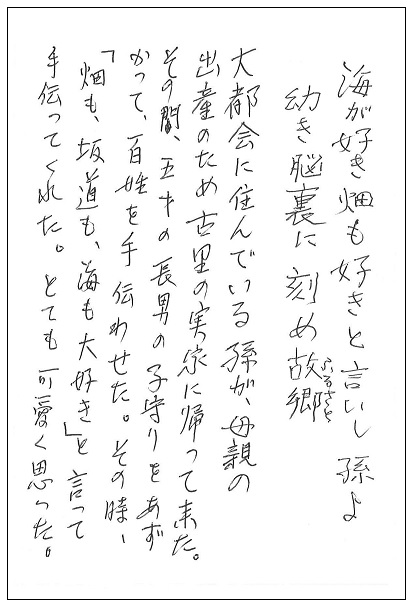 海が好き畑も好きと言いし孫よ
幼き脳裏に刻め故郷
ふるさと
大都会に住んでいる孫が、母親の
出産のため古里の実家に帰って来た。
その間、五才の長男の子守りをあず
かって、百姓を手伝わせた。その時、
「畑も、坂道も、海も大好き」と言って
手伝ってくれた。とても可愛く思った。